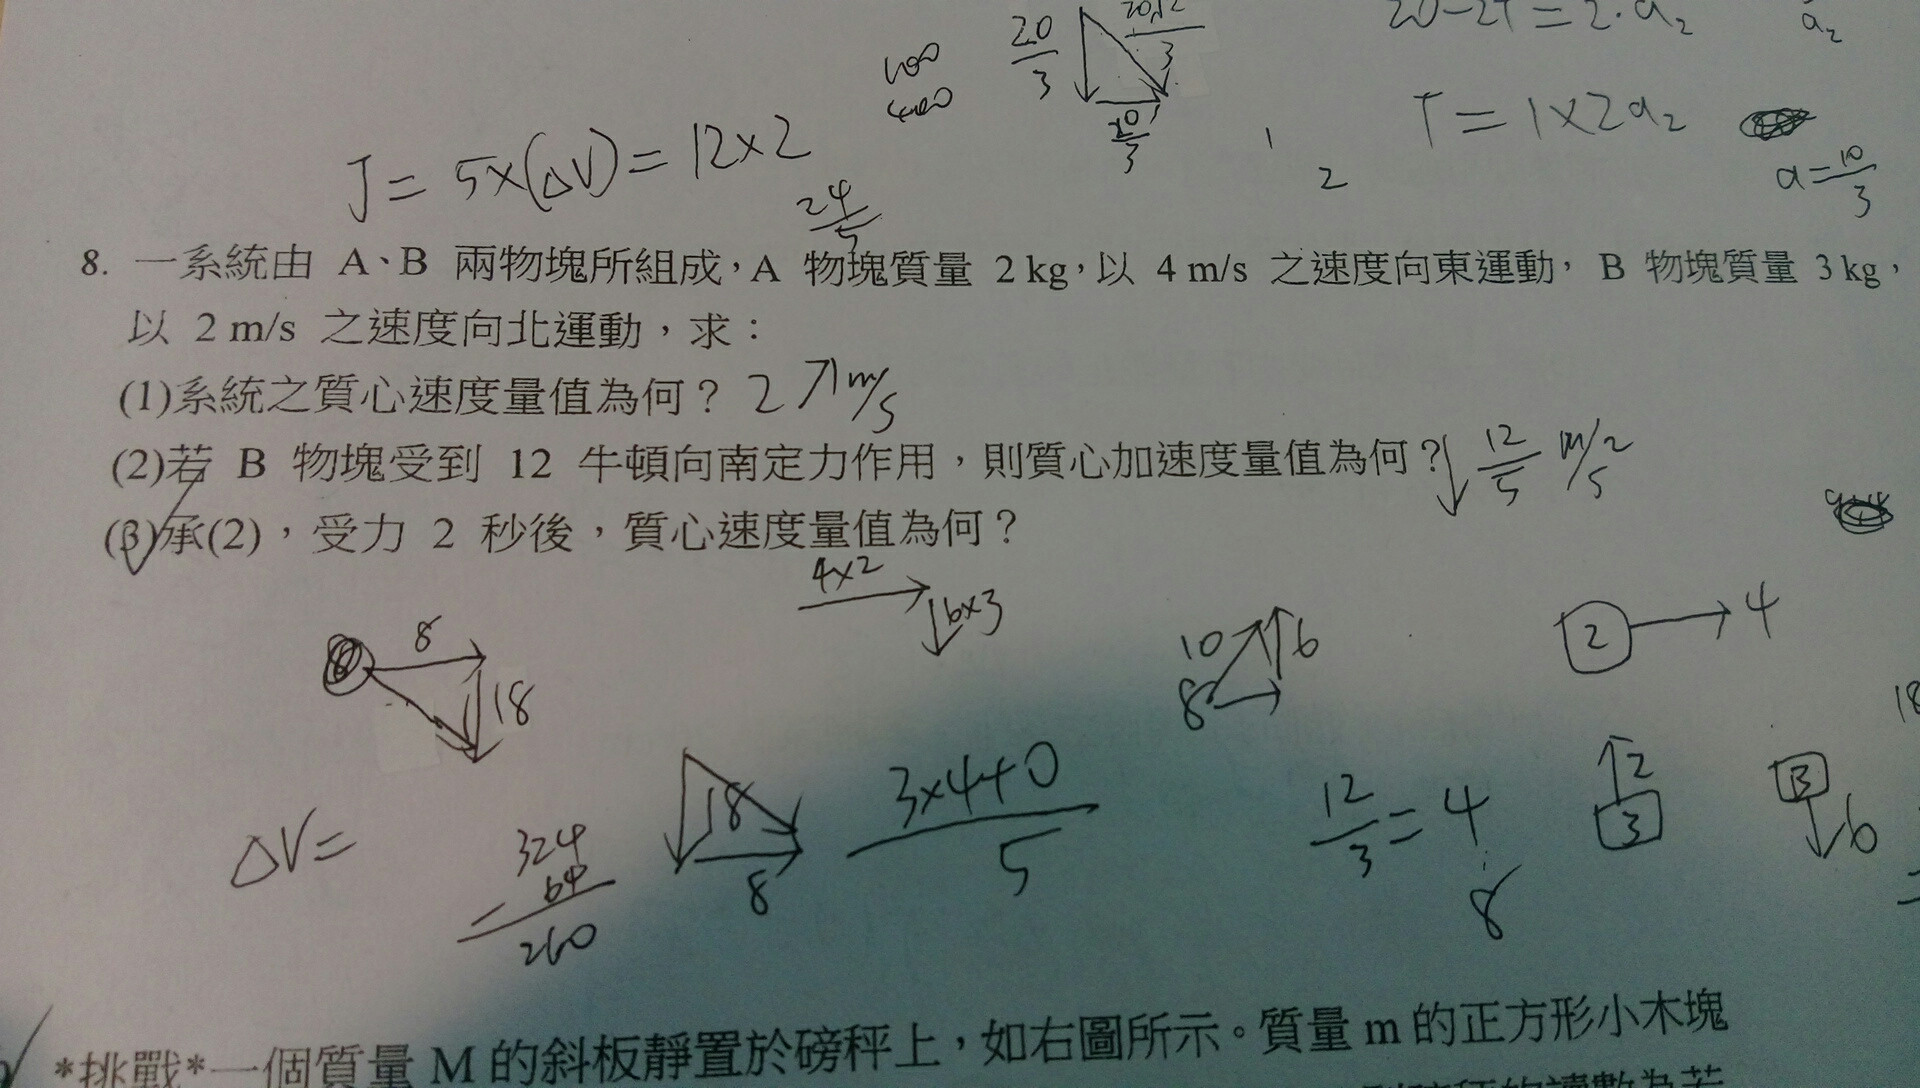 20-2T=2·a₂
a₂
20/3
20√2/3
20/3
100
400
T=1×2a₂
a=10/3
1
2
J=5×(ΔV)=12×2
24/5
8. 一系統由 A、B 兩物塊所組成,A 物塊質量 2 kg,以 4 m/s 之速度向東運動, B 物塊質量 3 kg,
以 2 m/s 之速度向北運動,求:
(1)系統之質心速度量值為何? 2 ↗ m/s
(2)若 B 物塊受到 12 牛頓向南定力作用,則質心加速度量值為何? ↓ 12/5 m/s²
(3)承(2),受力 2 秒後,質心速度量值為何?
4×2
6×3
8
18
10
6
8
2 → 4
18
ΔV=
324
64
=
260
18
8
3×4+0/5
12/3=4
8
2
3
6
*挑戰*一個質量 M 的斜板靜置於磅秤上,如右圖所示。質量 m 的正方形小木塊